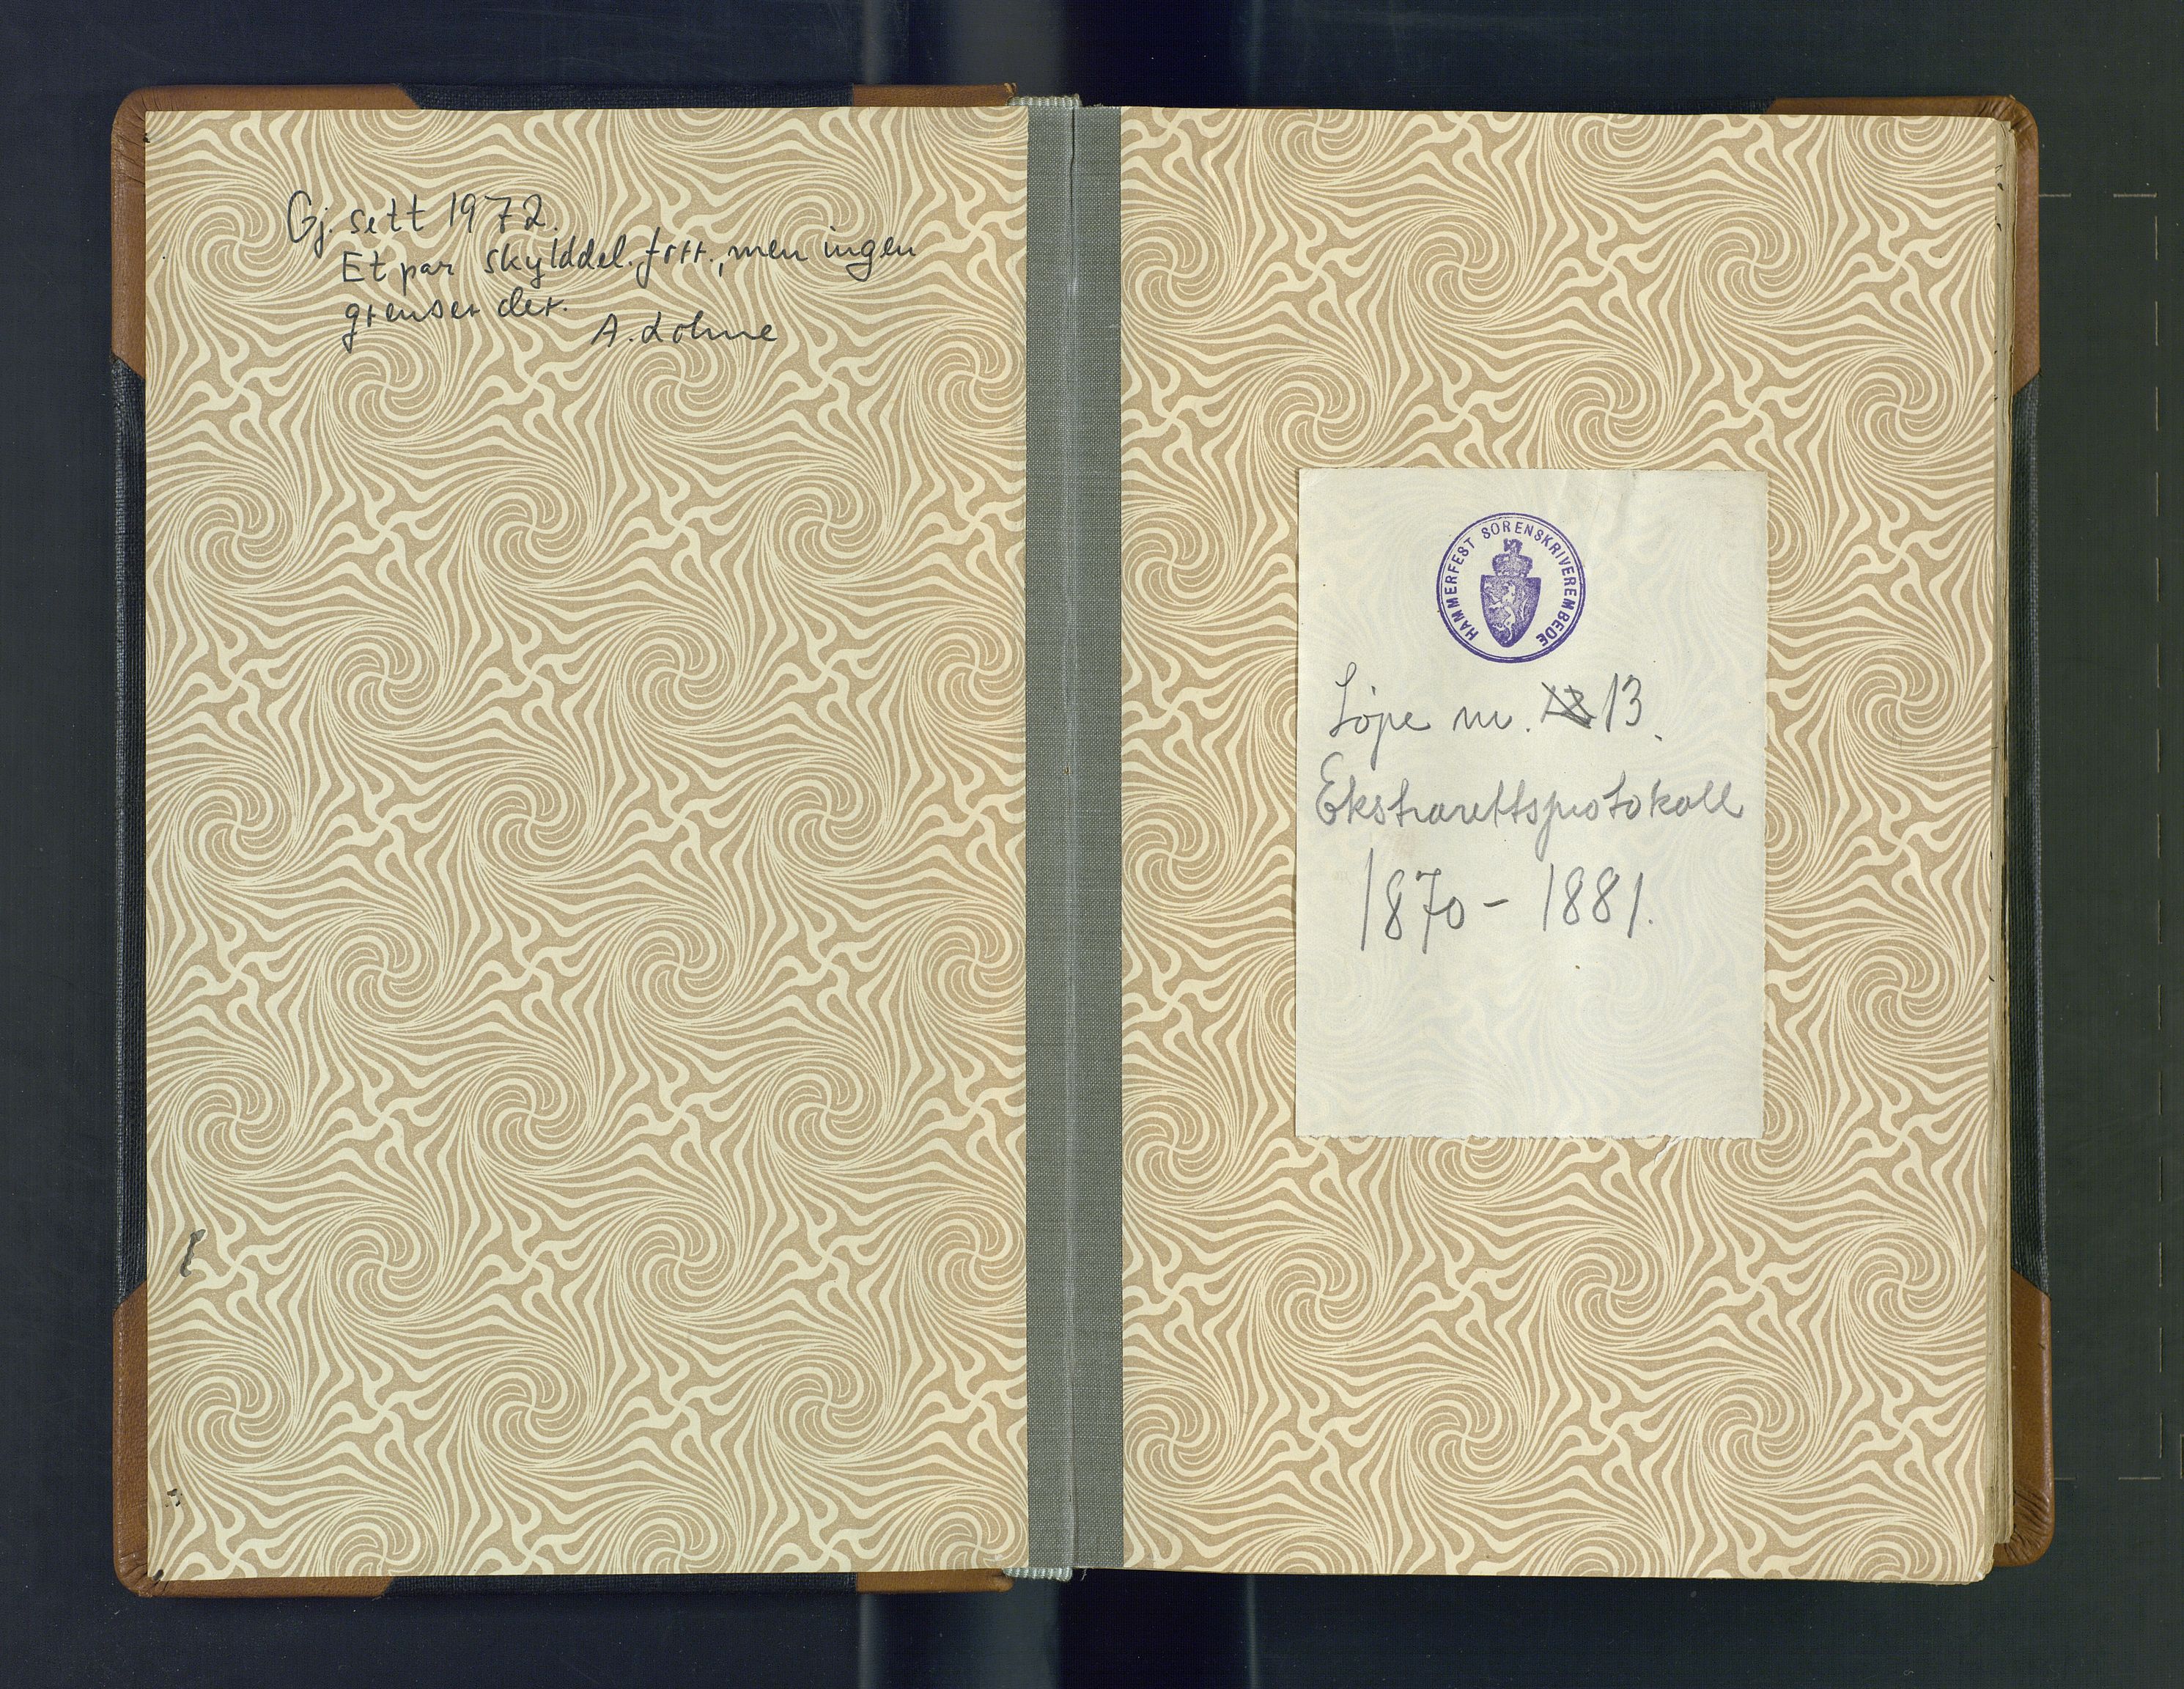 Gj. sett 1972.
Et par skylddel.forr., men ingen
grenser der.
A. Lohne
HAMMERFEST SORENSKRIVEREMBEDE
Löpe nr. 13.
Ekstrarettsprotokoll
1870 - 1881.